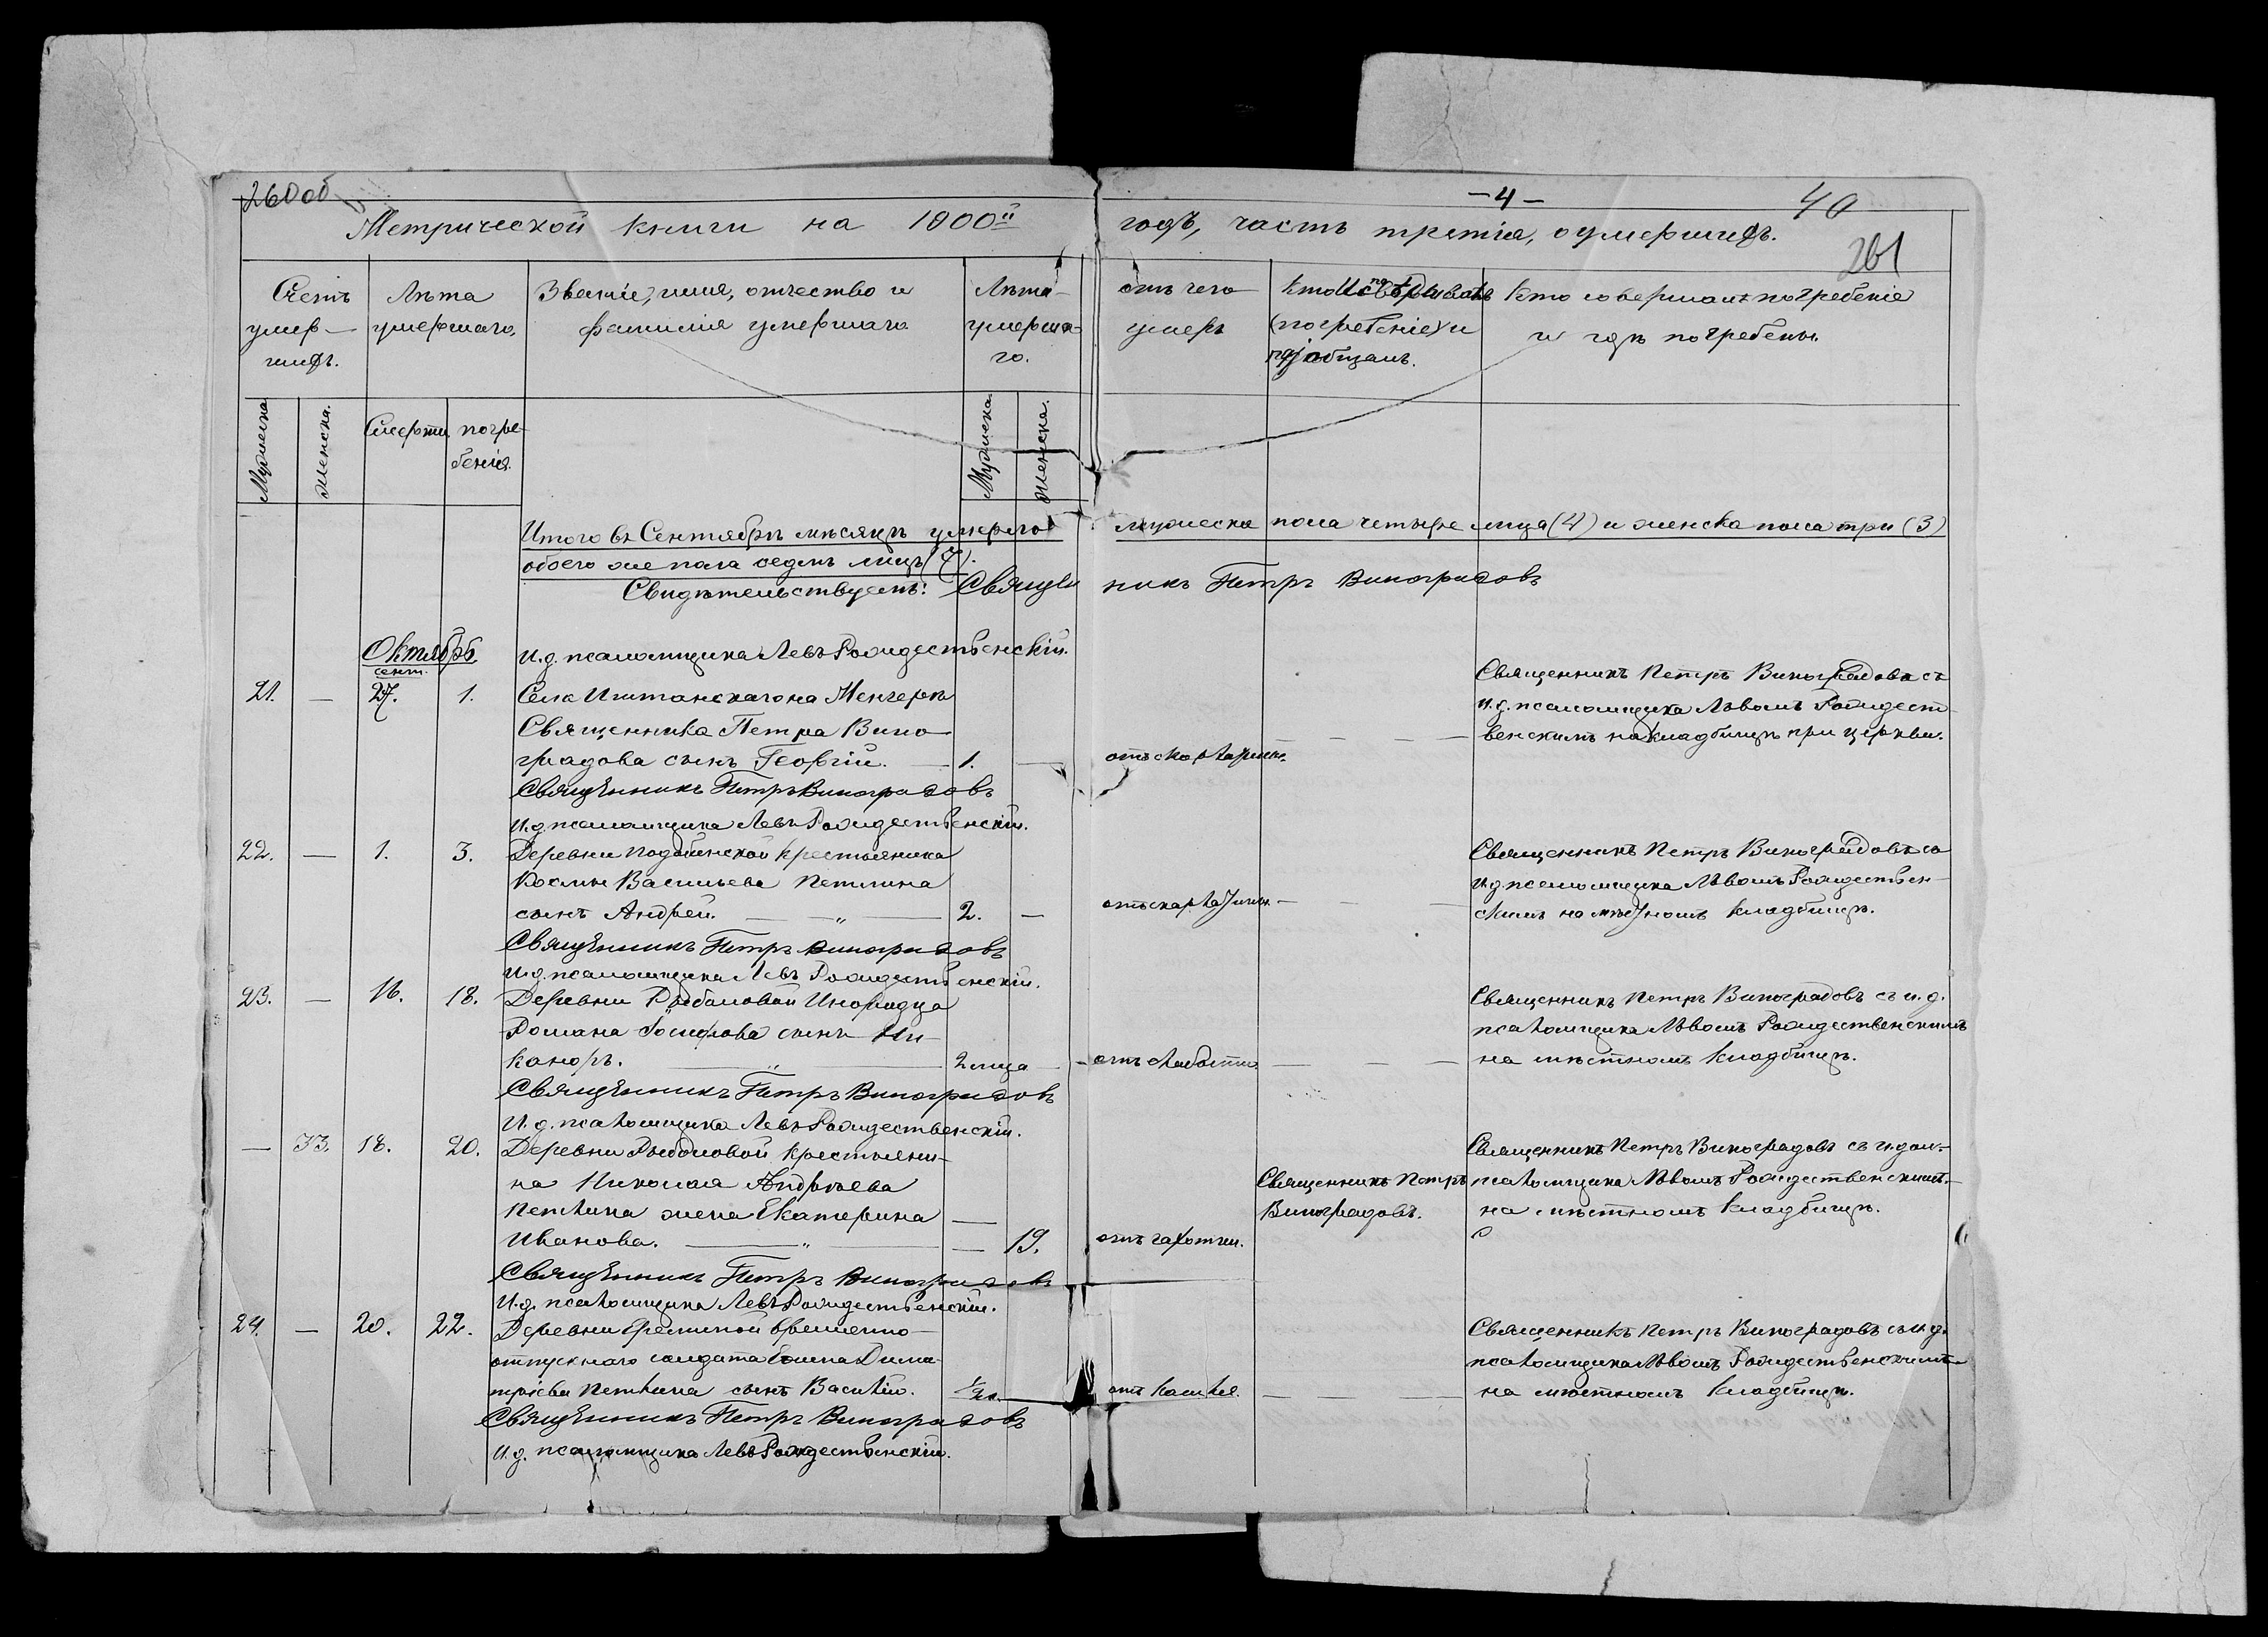 260об
— 4 —
40
261
Метрической книги на 1900й годъ, часть третія, о умершихъ.
Счетъ умер-
шихъ.
Мужеска
Женска.
Лѣта
умершаго.
Смерти
погре-
бенія.
Званіе, имя, отчество и
фамилія умершаго
Лѣта
умерша-
го.
Мужеска
Женска.
отъ чего
умеръ
Кто исповѣдывалъ
и
пріобщалъ.
Кто совершалъ погребеніе
и гдѣ погребены.
Итого въ Сентябрѣ мѣсяцѣ умерло мужеска пола четыре лица (4) и женска пола три (3)
обоего же пола седмь лицъ (7).
Свидѣтельствуемъ: Священникъ Петръ Виноградовъ
И.д. псаломщика Левъ Рождественскій.
Октябрь
сент.
21. — 27. 1.
Села Иштанскаго на Менгерѣ
Священника Петра Вино-
градова сынъ Георгій. — 1. —
отъ скарлатины.
Священникъ Петръ Виноградовъ съ
и.д. псаломщика Львомъ Рождест-
венскимъ на кладбищѣ при церкви.
Священникъ Петръ Виноградовъ
И.д. псаломщика Левъ Рождественскій.
22. — 1. 3.
Деревни крестьянина
Космы Васильева Петлина
сынъ Андрей. — „ — 2. —
отъ скарлатины. —
Священникъ Петръ Виноградовъ со
и.д. псаломщика Львомъ Рождествен-
скимъ на мѣстномъ кладбищѣ.
Священникъ Петръ Виноградовъ
И.д. псаломщика Левъ Рождественскій.
23. — 16. 18.
Деревни Рыбаловой Инородца
Романа Іосифова сынъ Ни-
каноръ. — „ — 2 мца —
отъ слабости — — —
Священникъ Петръ Виноградовъ съ и.д.
псаломщика Львомъ Рождественскимъ
на мѣстномъ кладбищѣ.
Священникъ Петръ Виноградовъ
И.д. псаломщика Левъ Рождественскій.
— 33. 18. 20.
Деревни Рыбаловой крестьяни-
на Николая Андреева
Петлина жена Екатерина —
Иванова. — „ — — 19.
отъ чахотки.
Священникъ Петръ
Виноградовъ.
Священникъ Петръ Виноградовъ съ и.дол.-
псаломщика Львомъ Рождественскимъ.-
на мѣстномъ кладбищѣ.
Священникъ Петръ Виноградовъ
И.д. псаломщика Левъ Рождественскій.
24. — 20. 22.
Деревни временно-
отпускнаго солдата Дими-
тріева Петлина сынъ Василій.
отъ кашля. — —
Священникъ Петръ Виноградовъ съ и.д.
псаломщика Львомъ Рождественскимъ
на мѣстномъ кладбищѣ.
Священникъ Петръ Виноградовъ
И.д. псаломщика Левъ Рождественскій.